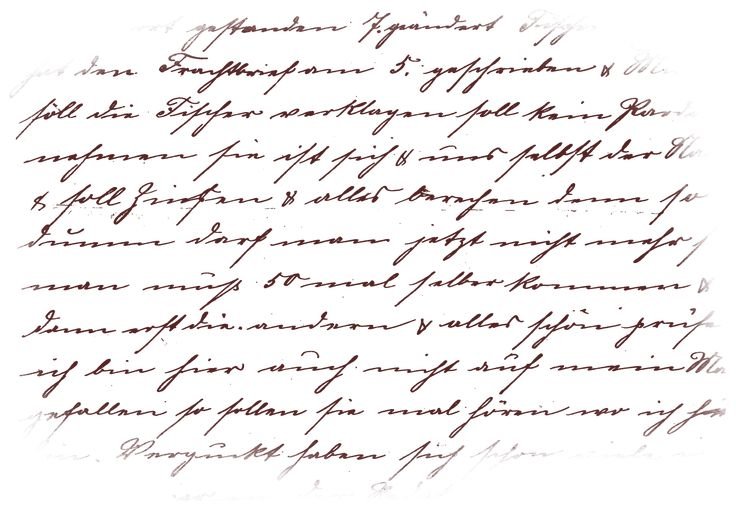 gestanden 7. geändert Fischer
hat den Frachtbrief am 5. geschrieben &
soll die Fischer verklagen soll kein
nehmen sie ist sich & uns selbst der
& soll Zinsen & alles berechen denn so
dumm darf man jetzt nicht mehr
man muß 50 mal selber kommen &
dann erst die. andern & alles schön prüfe
ich bin hier auch nicht auf mein
gefallen so sollen sie mal hören wo ich
Verguckt haben sich schon viele